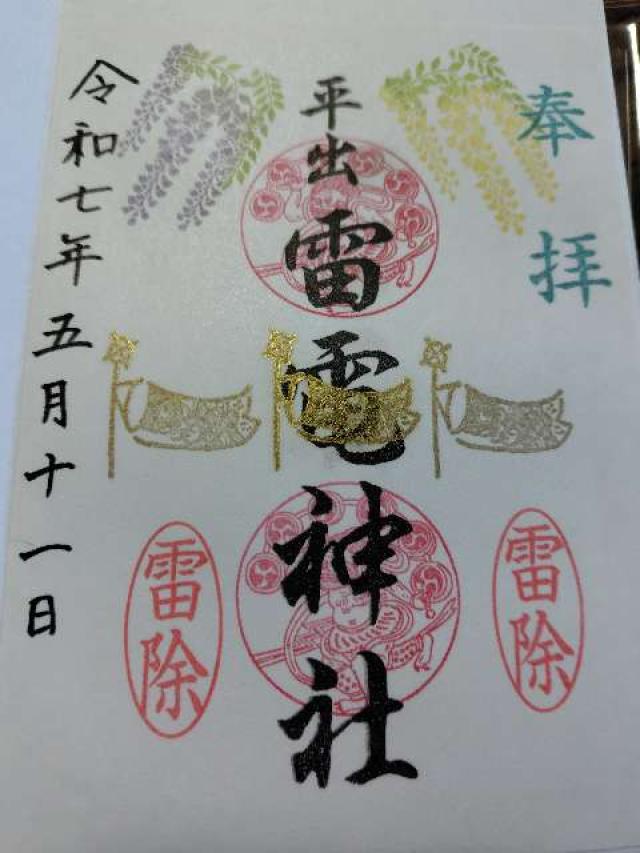 奉拝
平出雷電神社
雷除
雷除
令和七年五月十一日